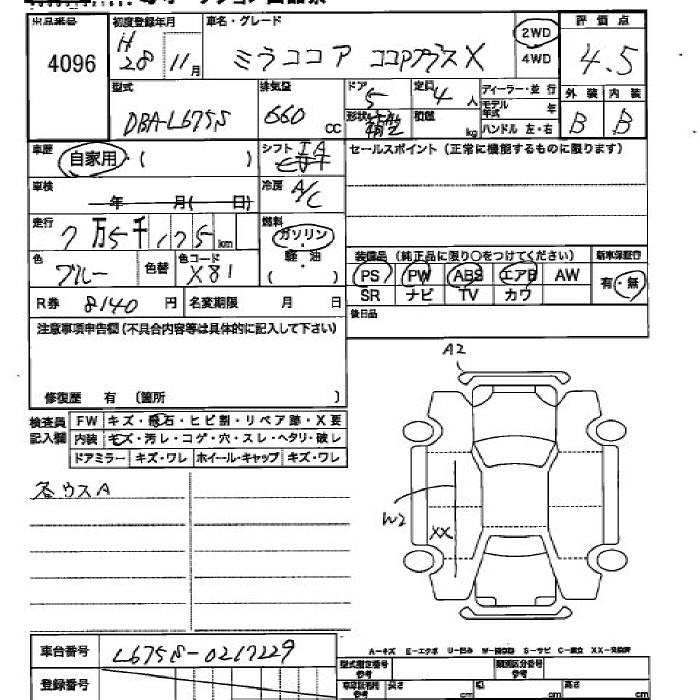 出品番号 初度登録年月 車名・グレード 2WD 評価点
4096 H28 11月 ミラココア ココアプラスX 4WD 4.5
型式 排気量 ドア 定員 ディーラー・並行 外装 内装
DBA-L675S 660cc 5 4人 モデル年式 年 B B
形状 箱型 積載 kg ハンドル 左・右
車歴 自家用・( ) シフト IA セールスポイント(正常に機能するものに限ります)
車検 年 月( 日) 冷房 A/C
走行 7万5千175km 燃料 ガソリン・軽油 ( )
装備品(純正品に限り○をつけてください) 新車保証行
色 ブルー 色替 色コード X81
PS PW ABS エアB AW 有・無
SR ナビ TV カワ
R券 8140円 名変期限 月 日
後日品
注意事項申告欄(不具合内容等は具体的に記入して下さい)
A2
修復歴 有 (箇所 )
検査員記入欄 FW キズ・飛石・ヒビ割・リペア跡・X要
内装 キズ・汚レ・コゲ・穴・スレ・ヘタリ・破レ
ドアミラー キズ・ワレ ホイール・キャップ キズ・ワレ
各ウスA
W2
XX
A-キズ E-エクボ U-凹み W-補修跡 S-サビ C-腐食 XX-交換済
車台番号 L675S-0217229
型式指定番号 類別区分番号
登録番号
長さ cm 幅 cm 高さ cm